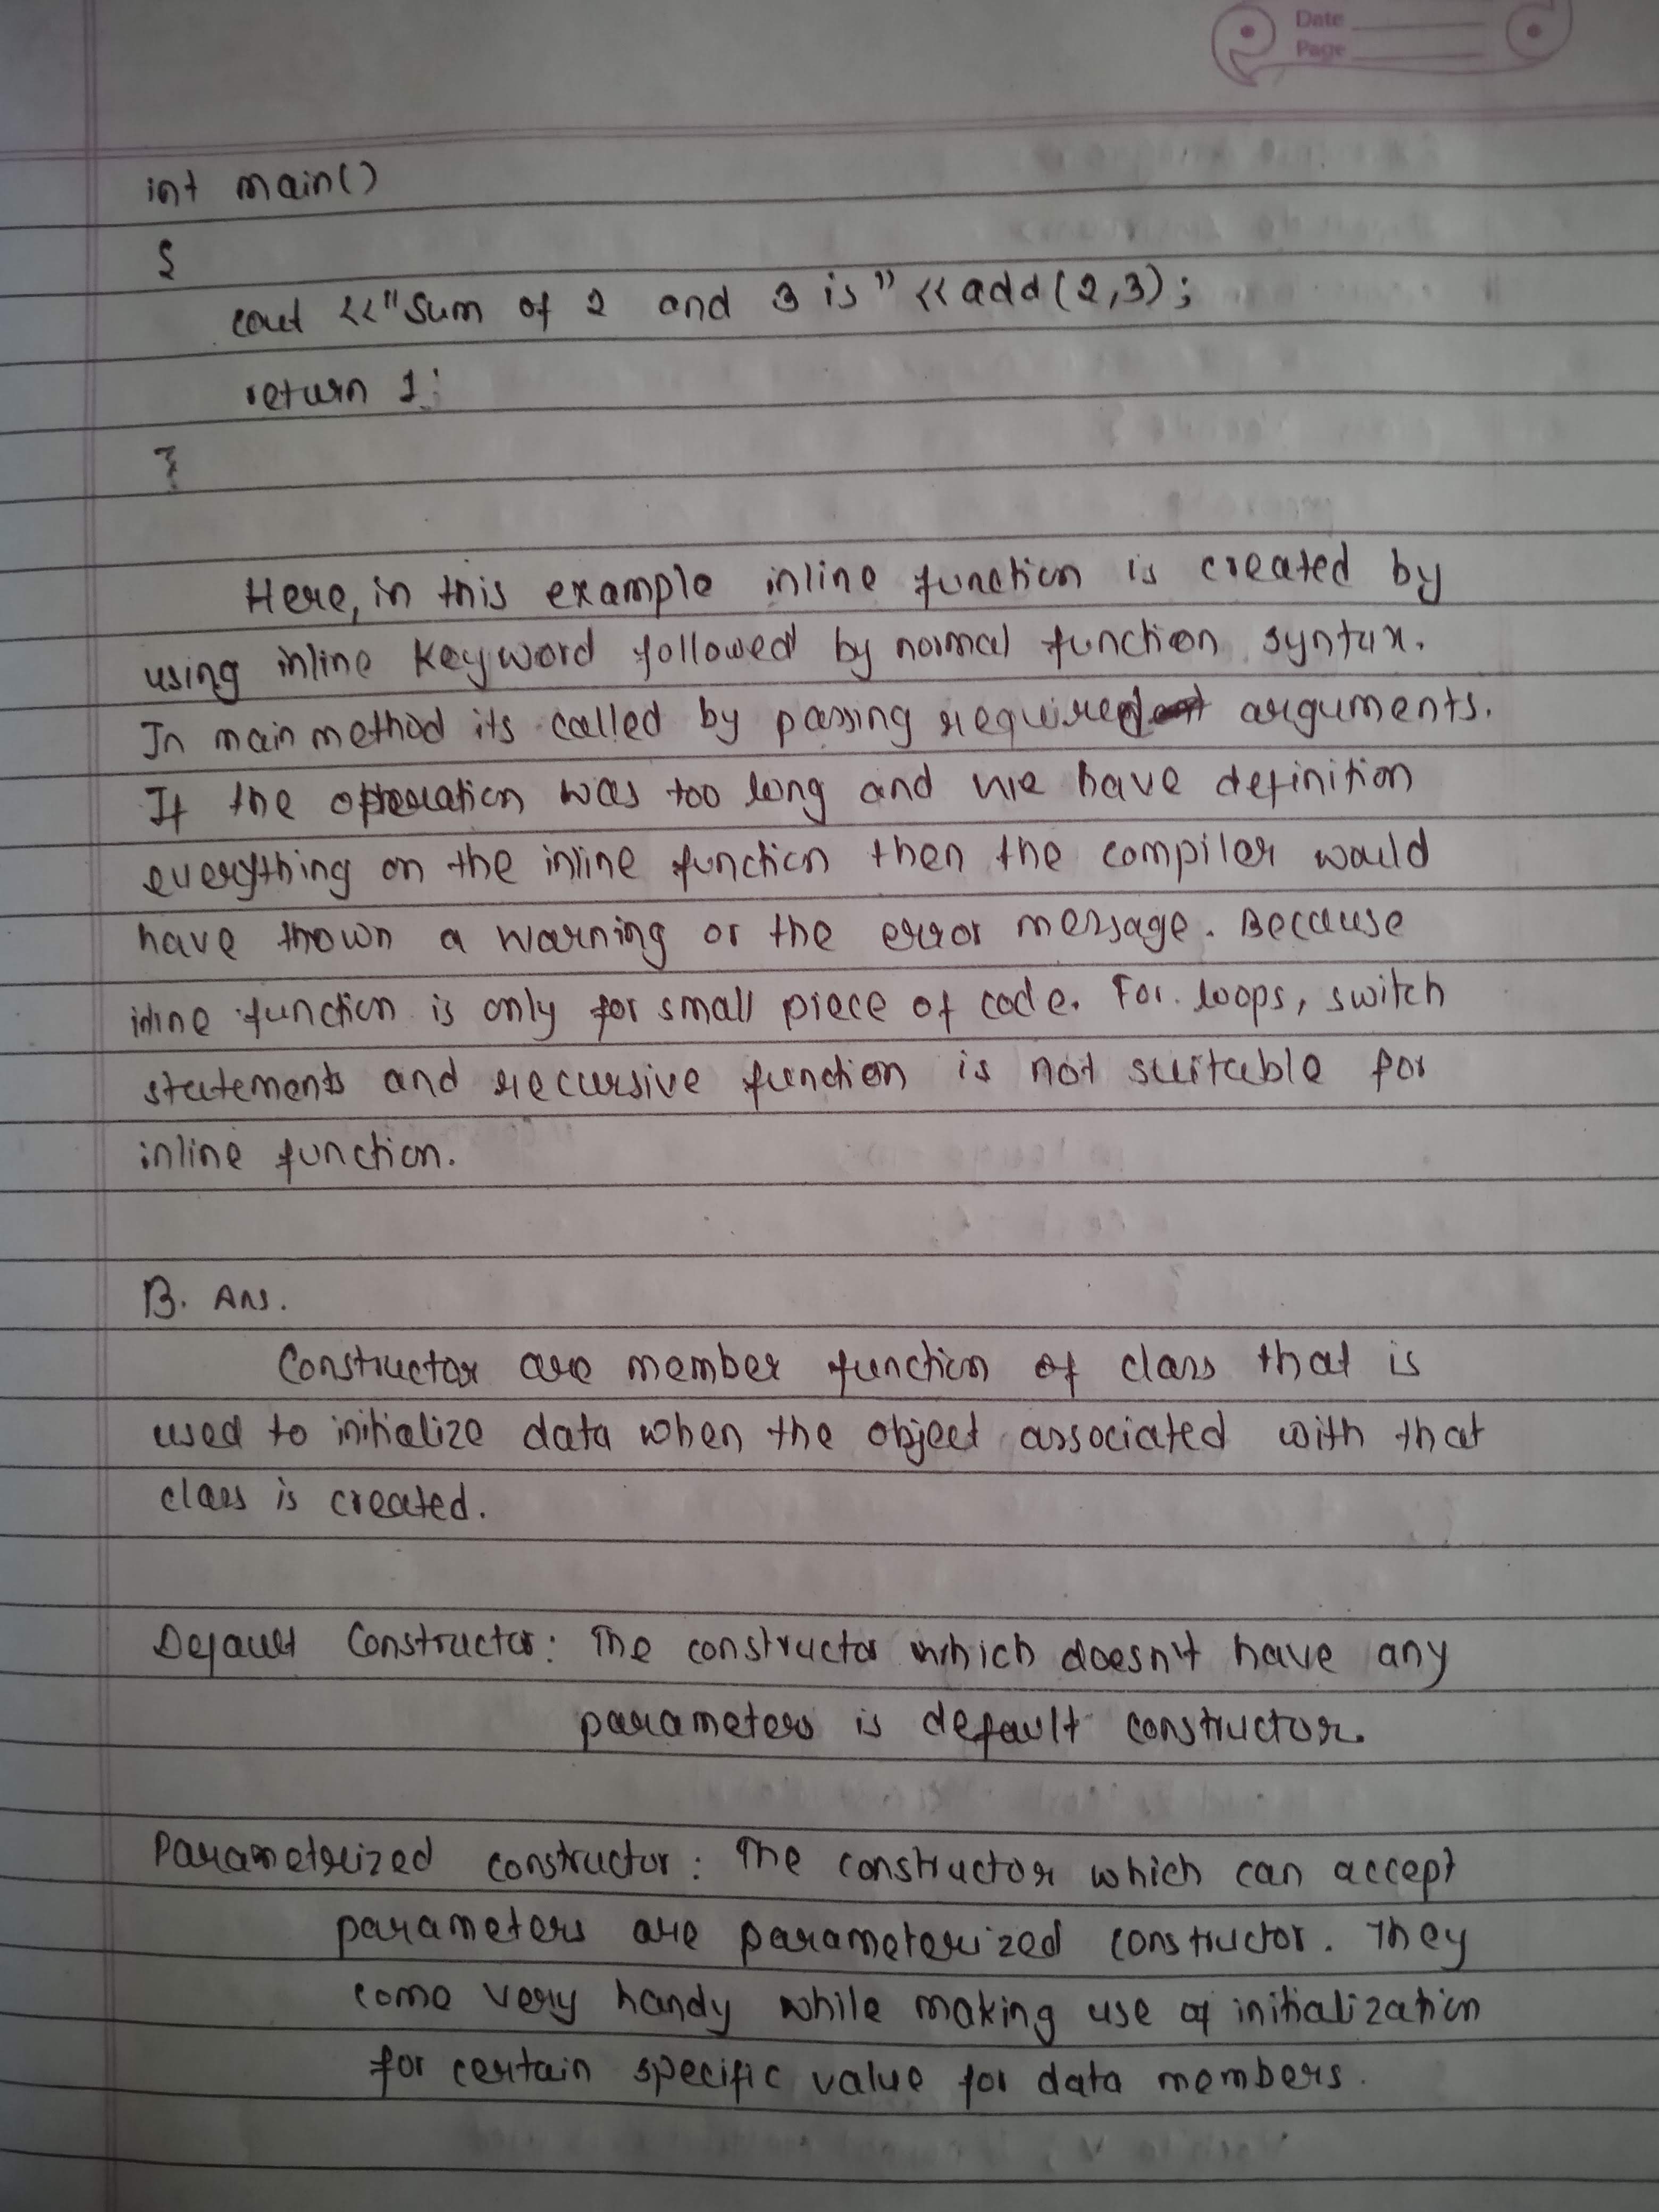 Date
Page
int main()
{
cout <<"Sum of 2 and 3 is" <<add(2,3);
return 1;
}
Here, in this example inline function is created by
using inline Keyword followed by normal function syntax.
In main method its called by passing required arguments.
If the operation was too long and we have definition
everything on the inline function then the compiler would
have thown a warning or the error message. Because
inline function is only for small piece of code. For loops, switch
statements and recursive function is not suitable for
inline function.
B. Ans.
Constructor are member function of class that is
used to initialize data when the object associated with that
class is created.
Default Constructor: The constructor which doesn't have any
parameters is default constructor.
Parameterized constructor: The constructor which can accept
parameters are parameterized constructor. They
come very handy while making use of initialization
for certain specific value for data members.